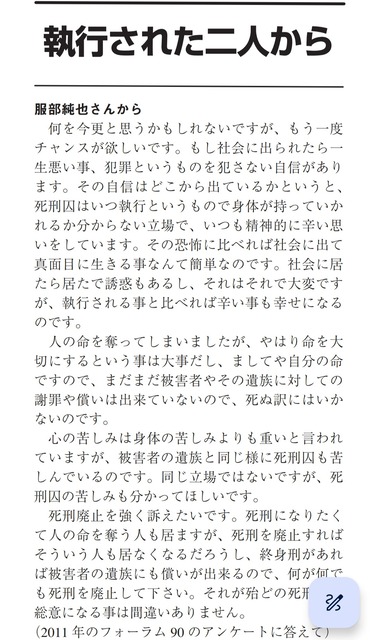 執行された二人から
服部純也さんから
何を今更と思うかもしれないですが、もう一度
チャンスが欲しいです。もし社会に出られたら一
生悪い事、犯罪というものを犯さない自信があり
ます。その自信はどこから出ているかというと、
死刑囚はいつ執行というもので身体が持っていか
れるか分からない立場で、いつも精神的に辛い思
いをしています。その恐怖に比べれば社会に出て
真面目に生きる事なんて簡単なのです。社会に居
たら居たで誘惑もあるし、それはそれで大変です
が、執行される事と比べれば辛い事も幸せになる
のです。
人の命を奪ってしまいましたが、やはり命を大
切にするという事は大事だし、ましてや自分の命
ですので、まだまだ被害者やその遺族に対しての
謝罪や償いは出来ていないので、死ぬ訳にはいか
ないのです。
心の苦しみは身体の苦しみよりも重いと言われ
ていますが、被害者の遺族と同じ様に死刑囚も苦
しんでいるのです。同じ立場ではないですが、死
刑囚の苦しみも分かってほしいです。
死刑廃止を強く訴えたいです。死刑になりたく
て人の命を奪う人も居ますが、死刑を廃止すれば
そういう人も居なくなるだろうし、終身刑があれ
ば被害者の遺族にも償いが出来るので、何が何で
も死刑を廃止して下さい。それが殆どの死刑
総意になる事は間違いありません。
(2011年のフォーラム90のアンケートに答えて)